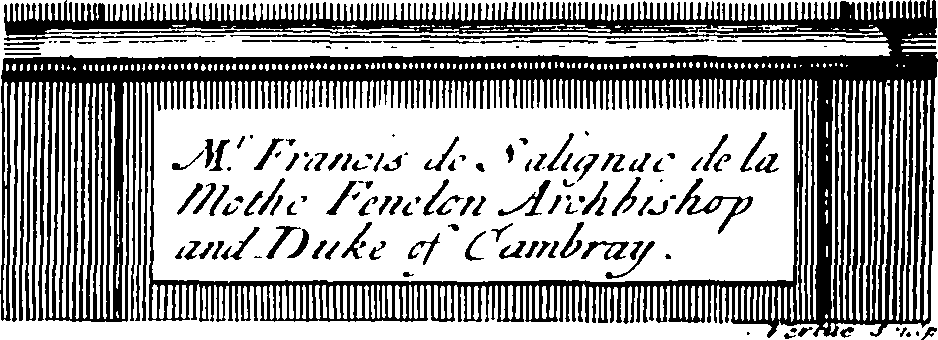 Mr. Francis de Salignac de la
Mothe Fenelon Archbishop
and Duke of Cambray.
Vertue Sculp